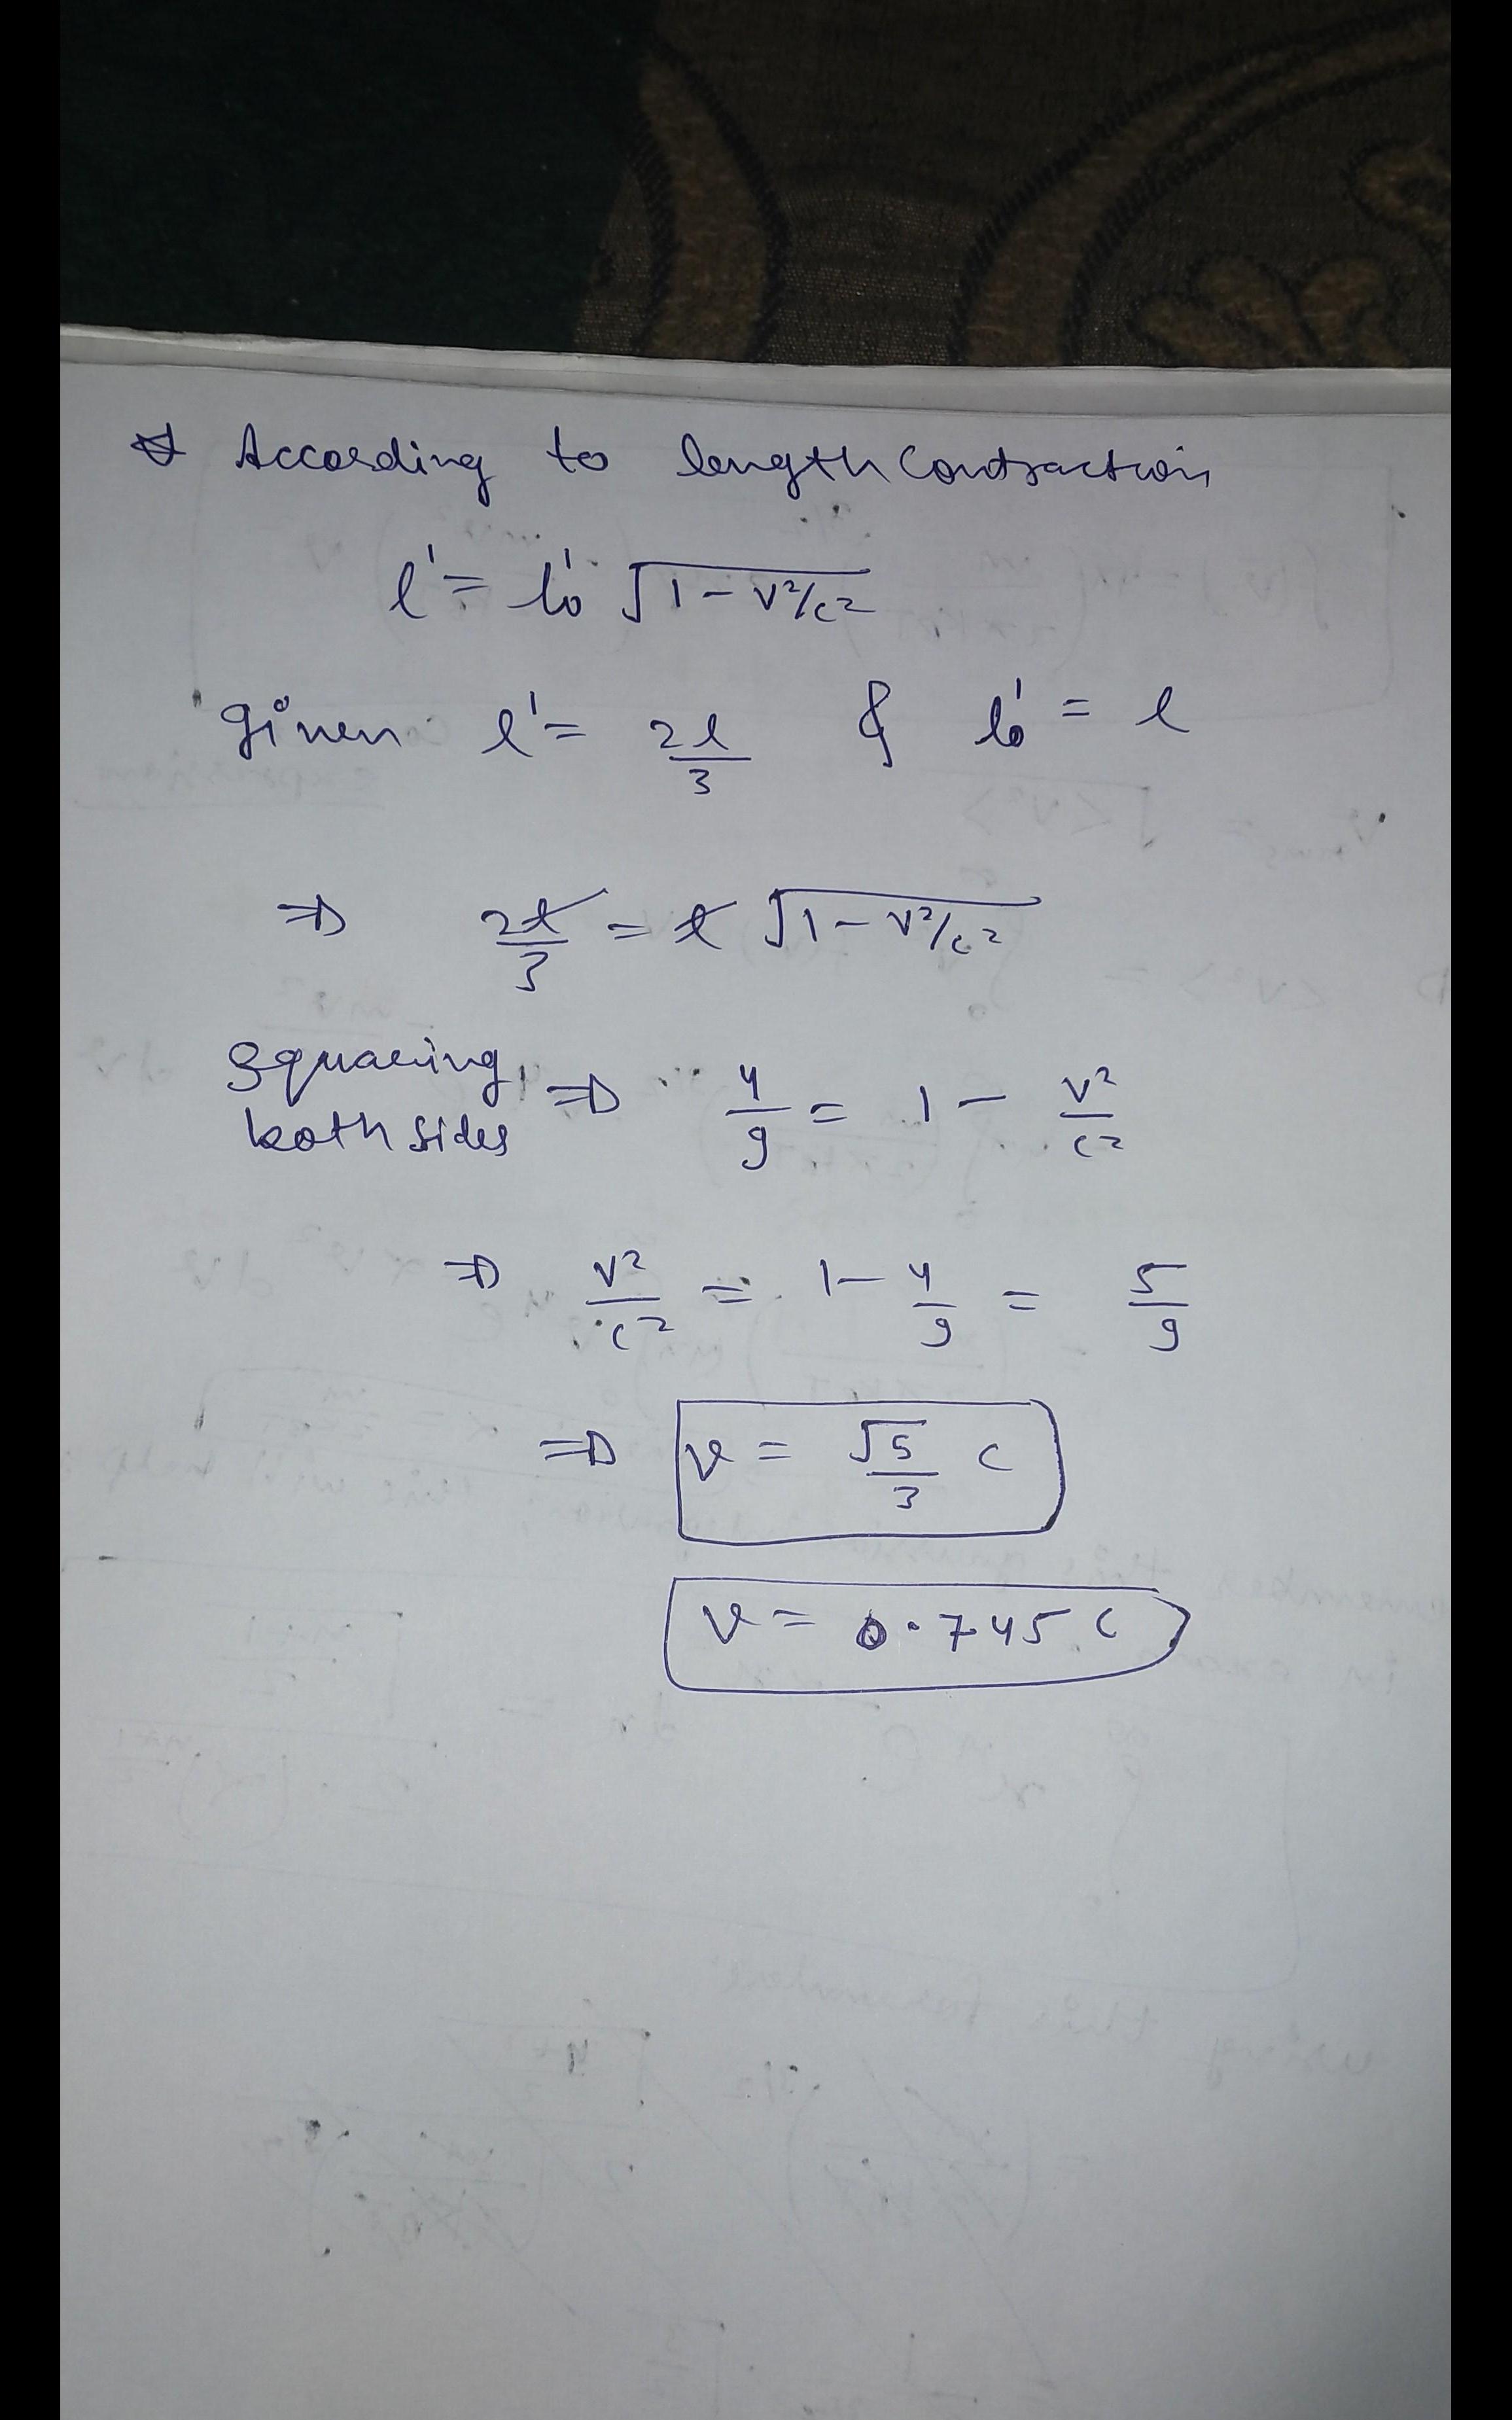 According to length Contraction
l' = l₀' √1 - v²/c²
given l' = 2l/3 & l₀' = l
⇒ 2l/3 = l √1 - v²/c²
Squaring both sides ⇒ 4/9 = 1 - v²/c²
⇒ v²/c² = 1 - 4/9 = 5/9
⇒ v = √5/3 c
v = 0.745 c